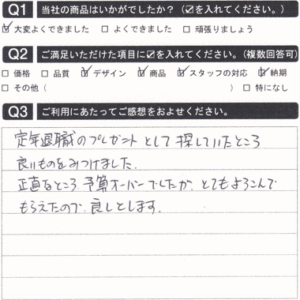 Q1 当社の商品はいかがでしたか？(☑を入れてください。)
☑大変よくできました □よくできました □頑張りましょう
Q2 ご満足いただけた項目に☑を入れてください。(複数回答可)
□価格 □品質 ☑デザイン ☑商品 ☑スタッフの対応 ☑納期
□その他( ) □特になし
Q3 ご利用にあたってご感想をおよせください。
定年退職のプレゼントとして探していたところ
良いものをみつけました。
正直なところ予算オーバーでしたが、とてもよろこんで
もらえたので、良しとします。